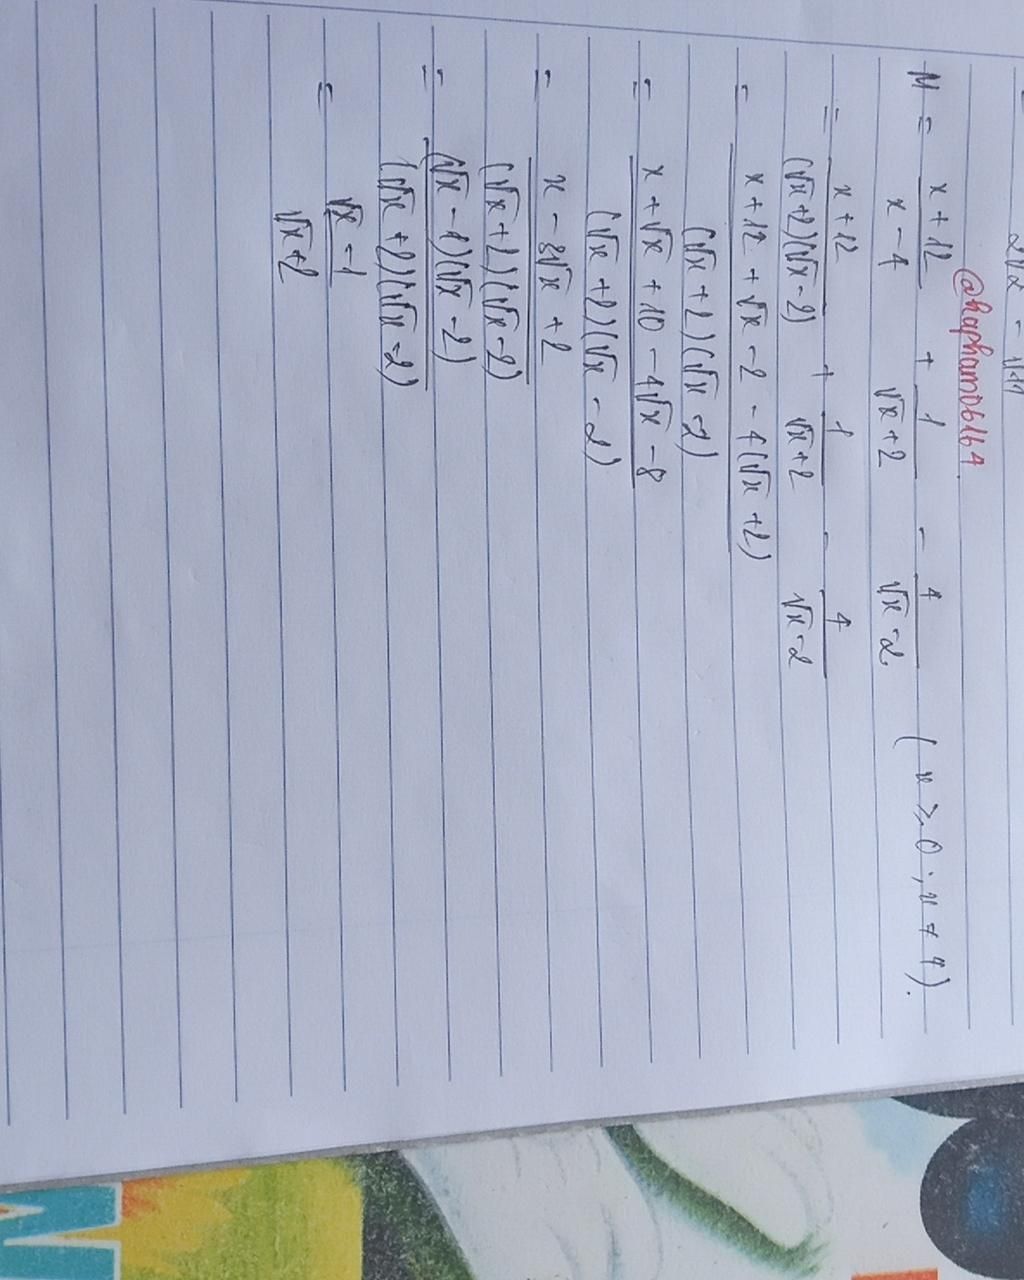 @hapham06164
M = \frac{x+12}{x-4} + \frac{1}{\sqrt{x}+2} - \frac{4}{\sqrt{x}-2} (x ≥ 0 ; x ≠ 4).
= \frac{x+12}{(\sqrt{x}+2)(\sqrt{x}-2)} + \frac{1}{\sqrt{x}+2} - \frac{4}{\sqrt{x}-2}
= \frac{x+12+\sqrt{x}-2-4(\sqrt{x}+2)}{(\sqrt{x}+2)(\sqrt{x}-2)}
= \frac{x+\sqrt{x}+10-4\sqrt{x}-8}{(\sqrt{x}+2)(\sqrt{x}-2)}
= \frac{x-3\sqrt{x}+2}{(\sqrt{x}+2)(\sqrt{x}-2)}
= \frac{(\sqrt{x}-1)(\sqrt{x}-2)}{(\sqrt{x}+2)(\sqrt{x}-2)}
= \frac{\sqrt{x}-1}{\sqrt{x}+2}